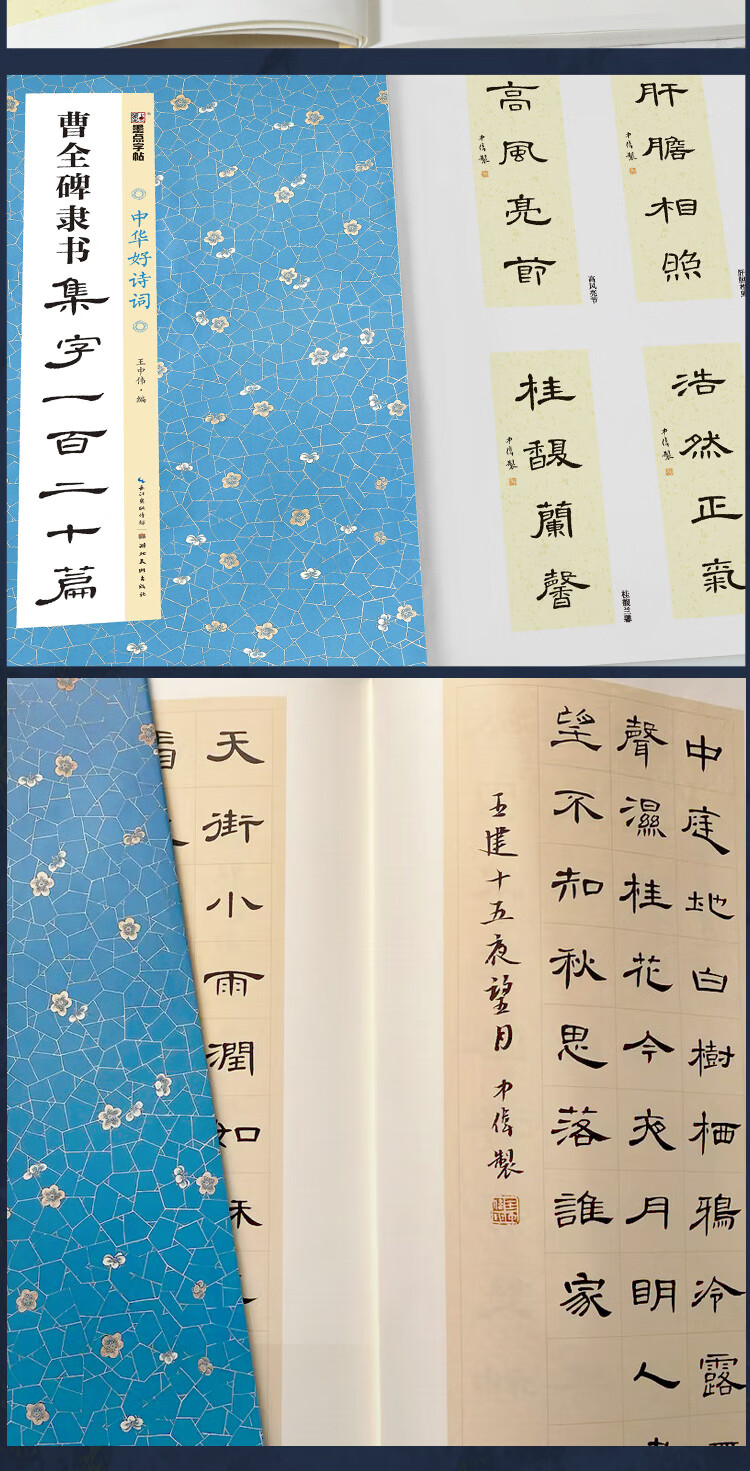 曹全碑隶书集字一百二十篇
墨点字帖
中华好诗词
王中伟·编
长江出版传媒
湖北美术出版社
肝膽相照
中偉製
高風亮節
中偉製
高风亮节
浩然正氣
中偉製
桂馥蘭馨
中偉製
桂馥兰馨
中庭地白樹栖鴉冷露
聲濕桂花今夜月明人
望不知秋思落誰家
王建十五夜望月 中偉製
天街小雨潤如